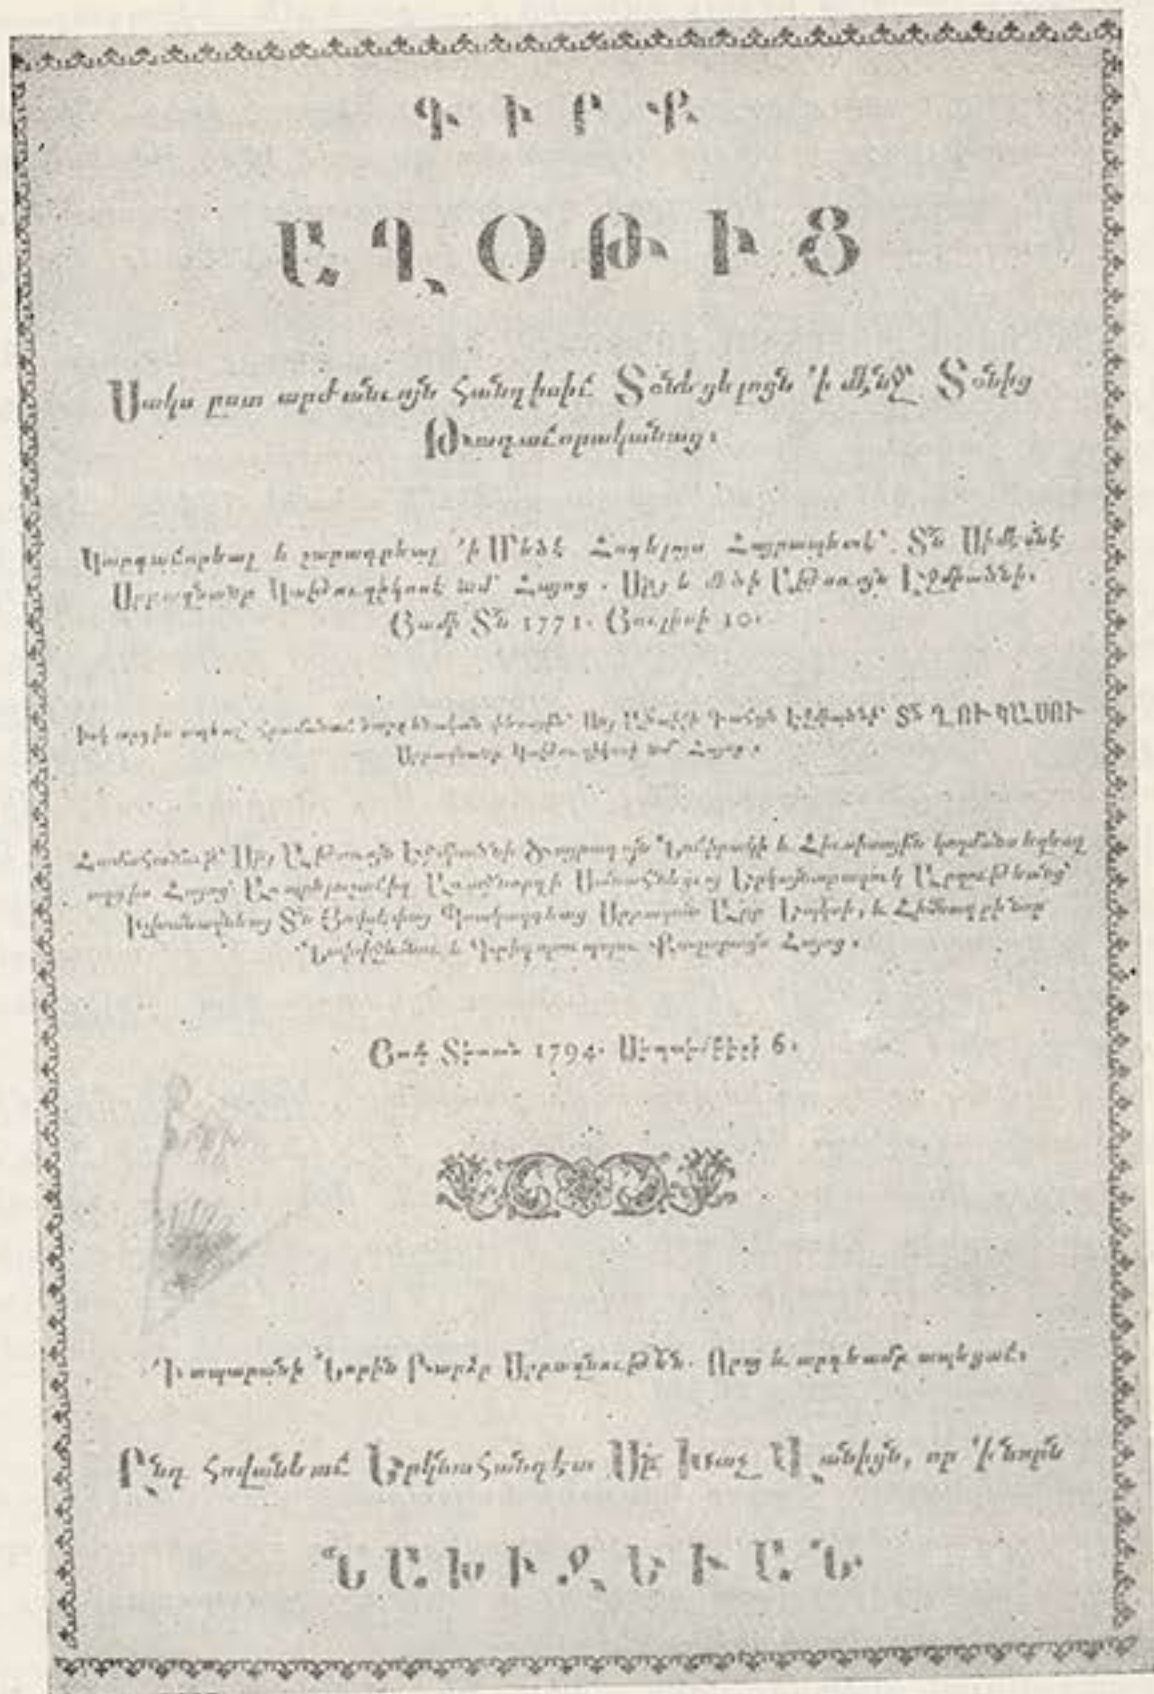 ԳԻՐՔ
ԱՂՕԹԻՑ
Սակս ըստ արժանւոյն Հանդիսիւ Տօնեցելոցն 'ի մէնջ Տօնից
Թագաւորականաց։
Կարգաւորեալ և շարադրեալ 'ի Մեծէ Հոգելոյս Հայրապետէ՝ Տն Սիմէօնէ
Սրբազնասր Կաթուղիկոսէ ամ՝ Հայոց․ Սրբ և մեծի Աթոռոյն Էջմիածնի։
Յամի Տն 1771․ Յուլիսի 10․
Իսկ արդ ի տպ Հրամանաւ Սրբ Գահոյն Էջմիածնի՝ ՏՆ ՂՈՒԿԱՍՈՒ
Սրբազնասր Կաթուղիկոսի ամ՝ Հայոց։
Սրբ Աթոռոյն Էջմիածնի ծայրագոյն Նուիրակի և Հիւսիսային կողմանս եղելոց
ազգիս Հայոց՝ Առաջնորդի Սանահնեցւոյ Երկայնաբազուկ Արղութեանց՝
Տն Յովսեփայ Սրբազան Արք Եպիսկ, և Հիմնադրի նոր
Նախիջևանու և Գրիգորու պօլսոյ Քաղաքացն Հայոց։
Յամի Տեառն 1794․ Սեպտեմբերի 6․
'Ի տպարանի Նորին Բարձր Սրբազնութեն․ Որոց և արդեամբ տպեցաւ։
Ընդ Հովանեաւ Երկնահանգէտ Սբ Խաչ Վանիցն, որ 'ի նորն
ՆԱԽԻՋԵՒԱՆ